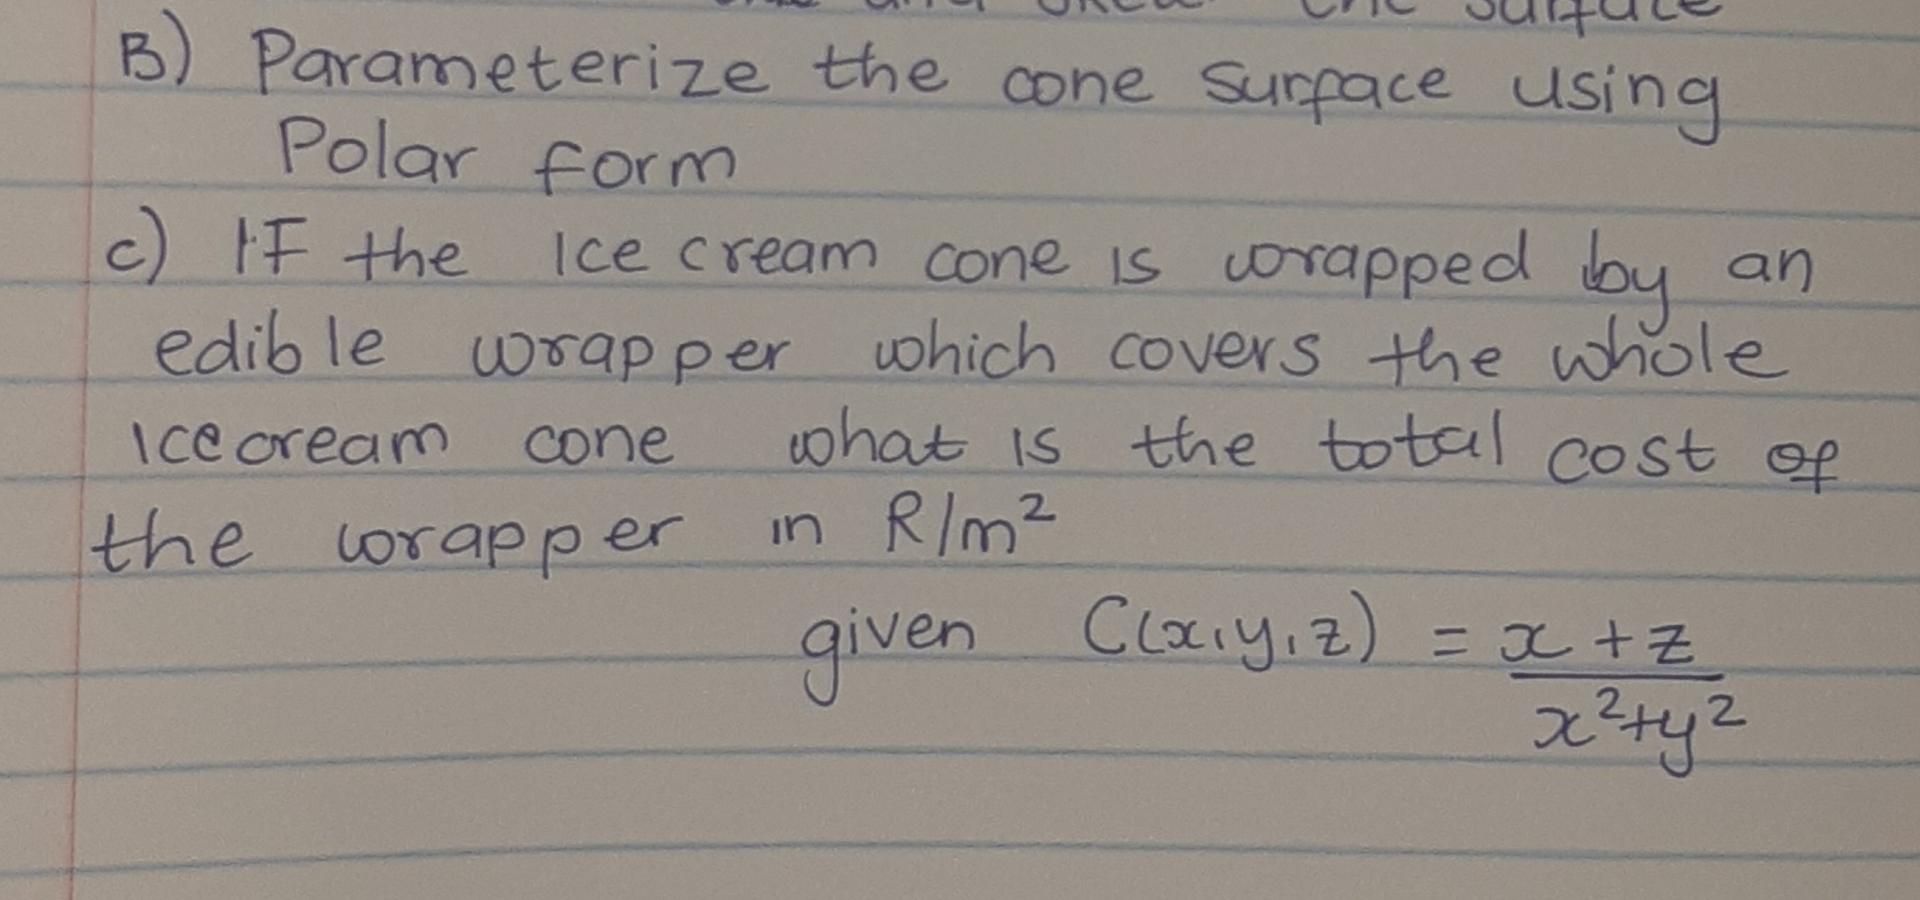 the surface
B) Parameterize the cone surface using
Polar form
c) IF the Ice cream cone is wrapped by an
edible wrapper which covers the whole
icecream cone what is the total cost of
the wrapper in R/m²
given C(x,y,z) = x + z
x²+y²